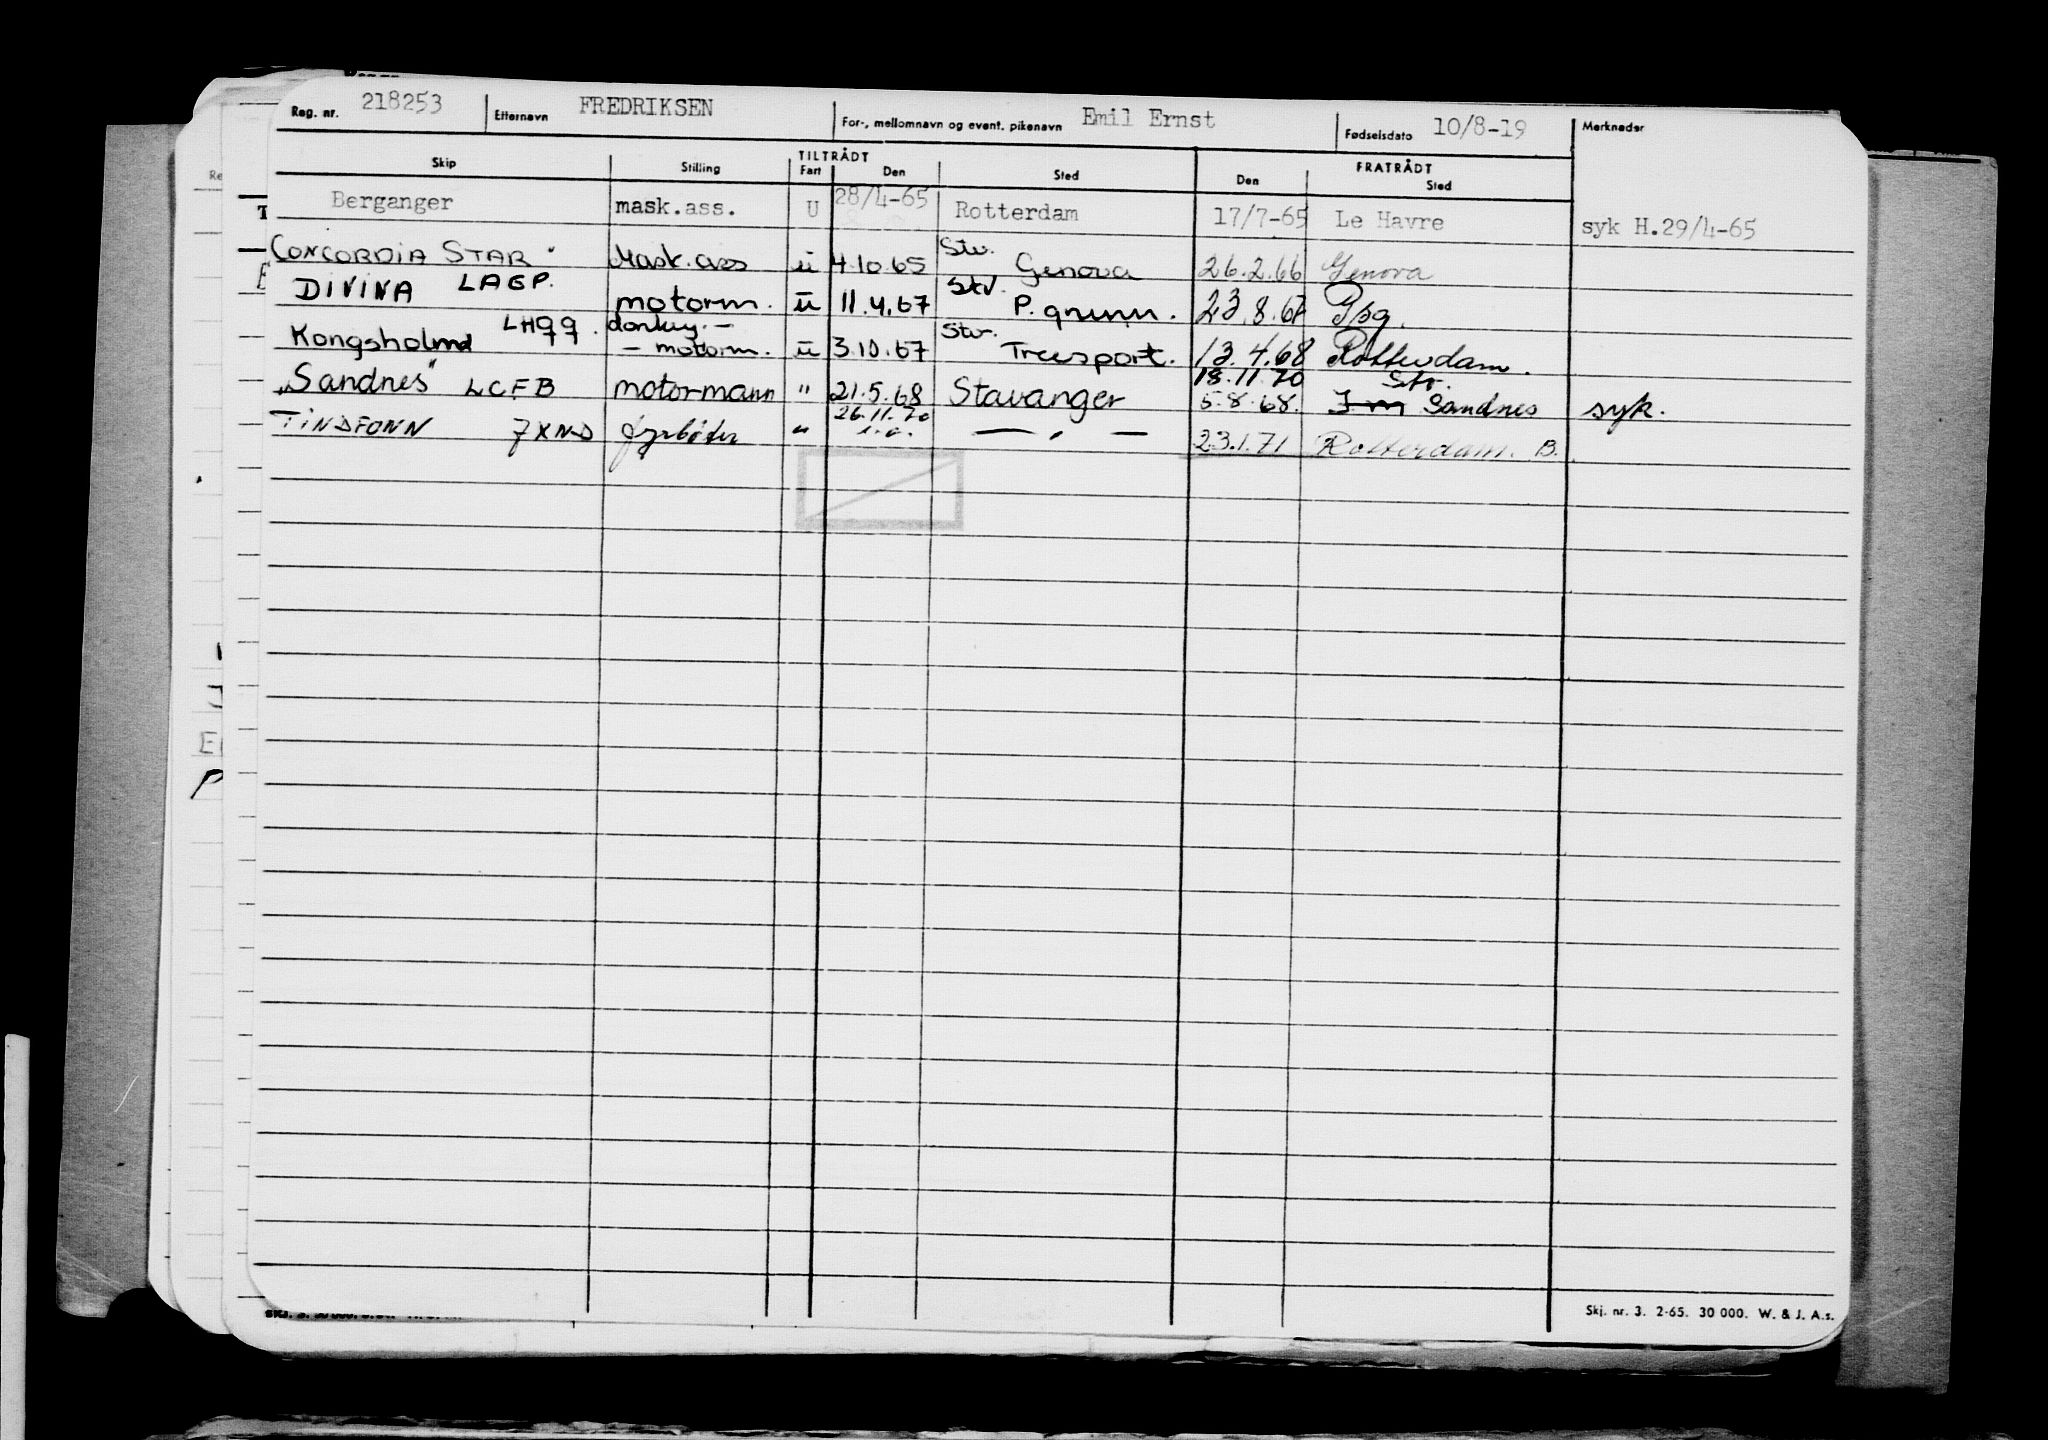 Reg. nr. 218253 Etternavn FREDRIKSEN For-, mellomnavn og event. pikenavn Emil Ernst Fødselsdato 10/8-19 Merknader
TILTRÅDT FRATRÅDT
Skip Stilling Fart Den Sted Den Sted
Berganger mask.ass. U 28/4-65 Rotterdam 17/7-65 Le Havre syk H.29/4-65
CONCORDIA STAR Mask. ass u 4.10.65 Stv. Genova 26.2.66 Genova
DIVINA LAEP. motorm. u 11.4.67 Stv. P. grunn. 23.8.67 Pbg.
Kongsholm LHQQ. donkey.-
- motorm. u 3.10.67 Stv. Treesport. 13.4.68 Rotterdam.
18.11.70 Stv.
„Sandnes" LCFB motormann " 21.5.68 Stavanger 5.8.68. Sandnes syk.
26.11.70
TINDFONN JXND fyrbøter " — " — 23.1.71 Rotterdam. B.
Skj. nr. 3. 2-65. 30 000. W. & J. A.s.